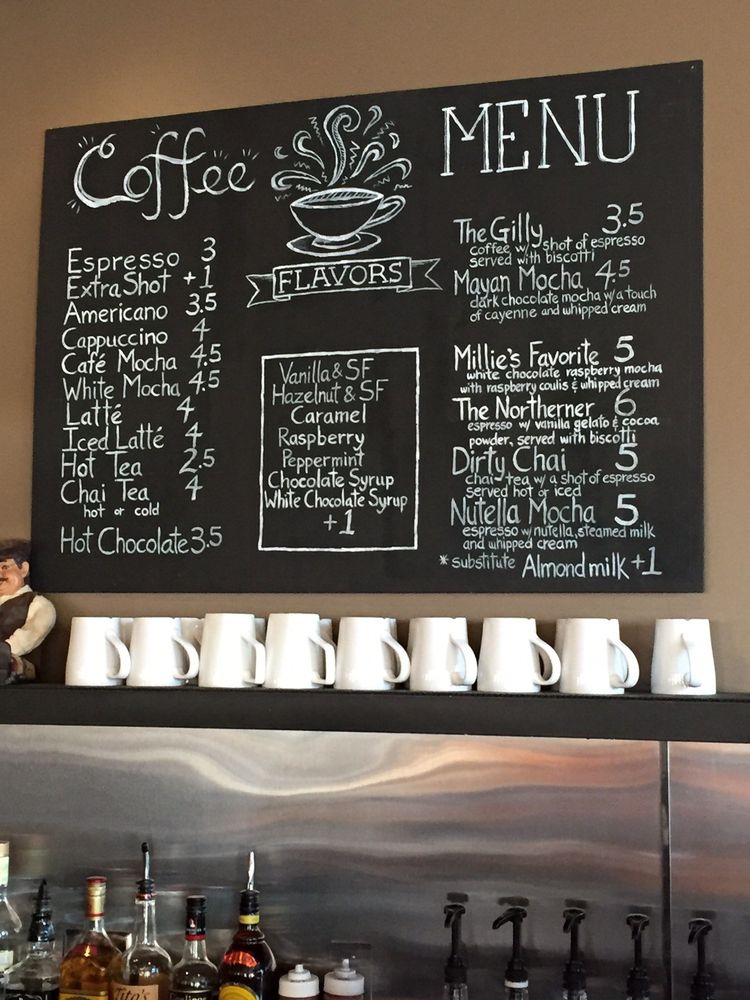 Coffee
MENU
FLAVORS
Espresso 3
Extra Shot +1
Americano 3.5
Cappuccino 4
Café Mocha 4.5
White Mocha 4.5
Latté 4
Iced Latté 4
Hot Tea 2.5
Chai Tea 4
hot or cold
Hot Chocolate 3.5
Vanilla & SF
Hazelnut & SF
Caramel
Raspberry
Peppermint
Chocolate Syrup
White Chocolate Syrup
+1
The Gilly 3.5
coffee w/ shot of espresso
served with biscotti
Mayan Mocha 4.5
dark chocolate mocha w/a touch
of cayenne and whipped cream
Millie's Favorite 5
white chocolate raspberry mocha
with raspberry coulis & whipped cream
The Northerner 6
espresso w/ vanilla gelato & cocoa
powder, served with biscotti
Dirty Chai 5
chai tea w/ a shot of espresso
served hot or iced
Nutella Mocha 5
espresso w/ nutella, steamed milk
and whipped cream
* substitute Almond milk +1
Tito's